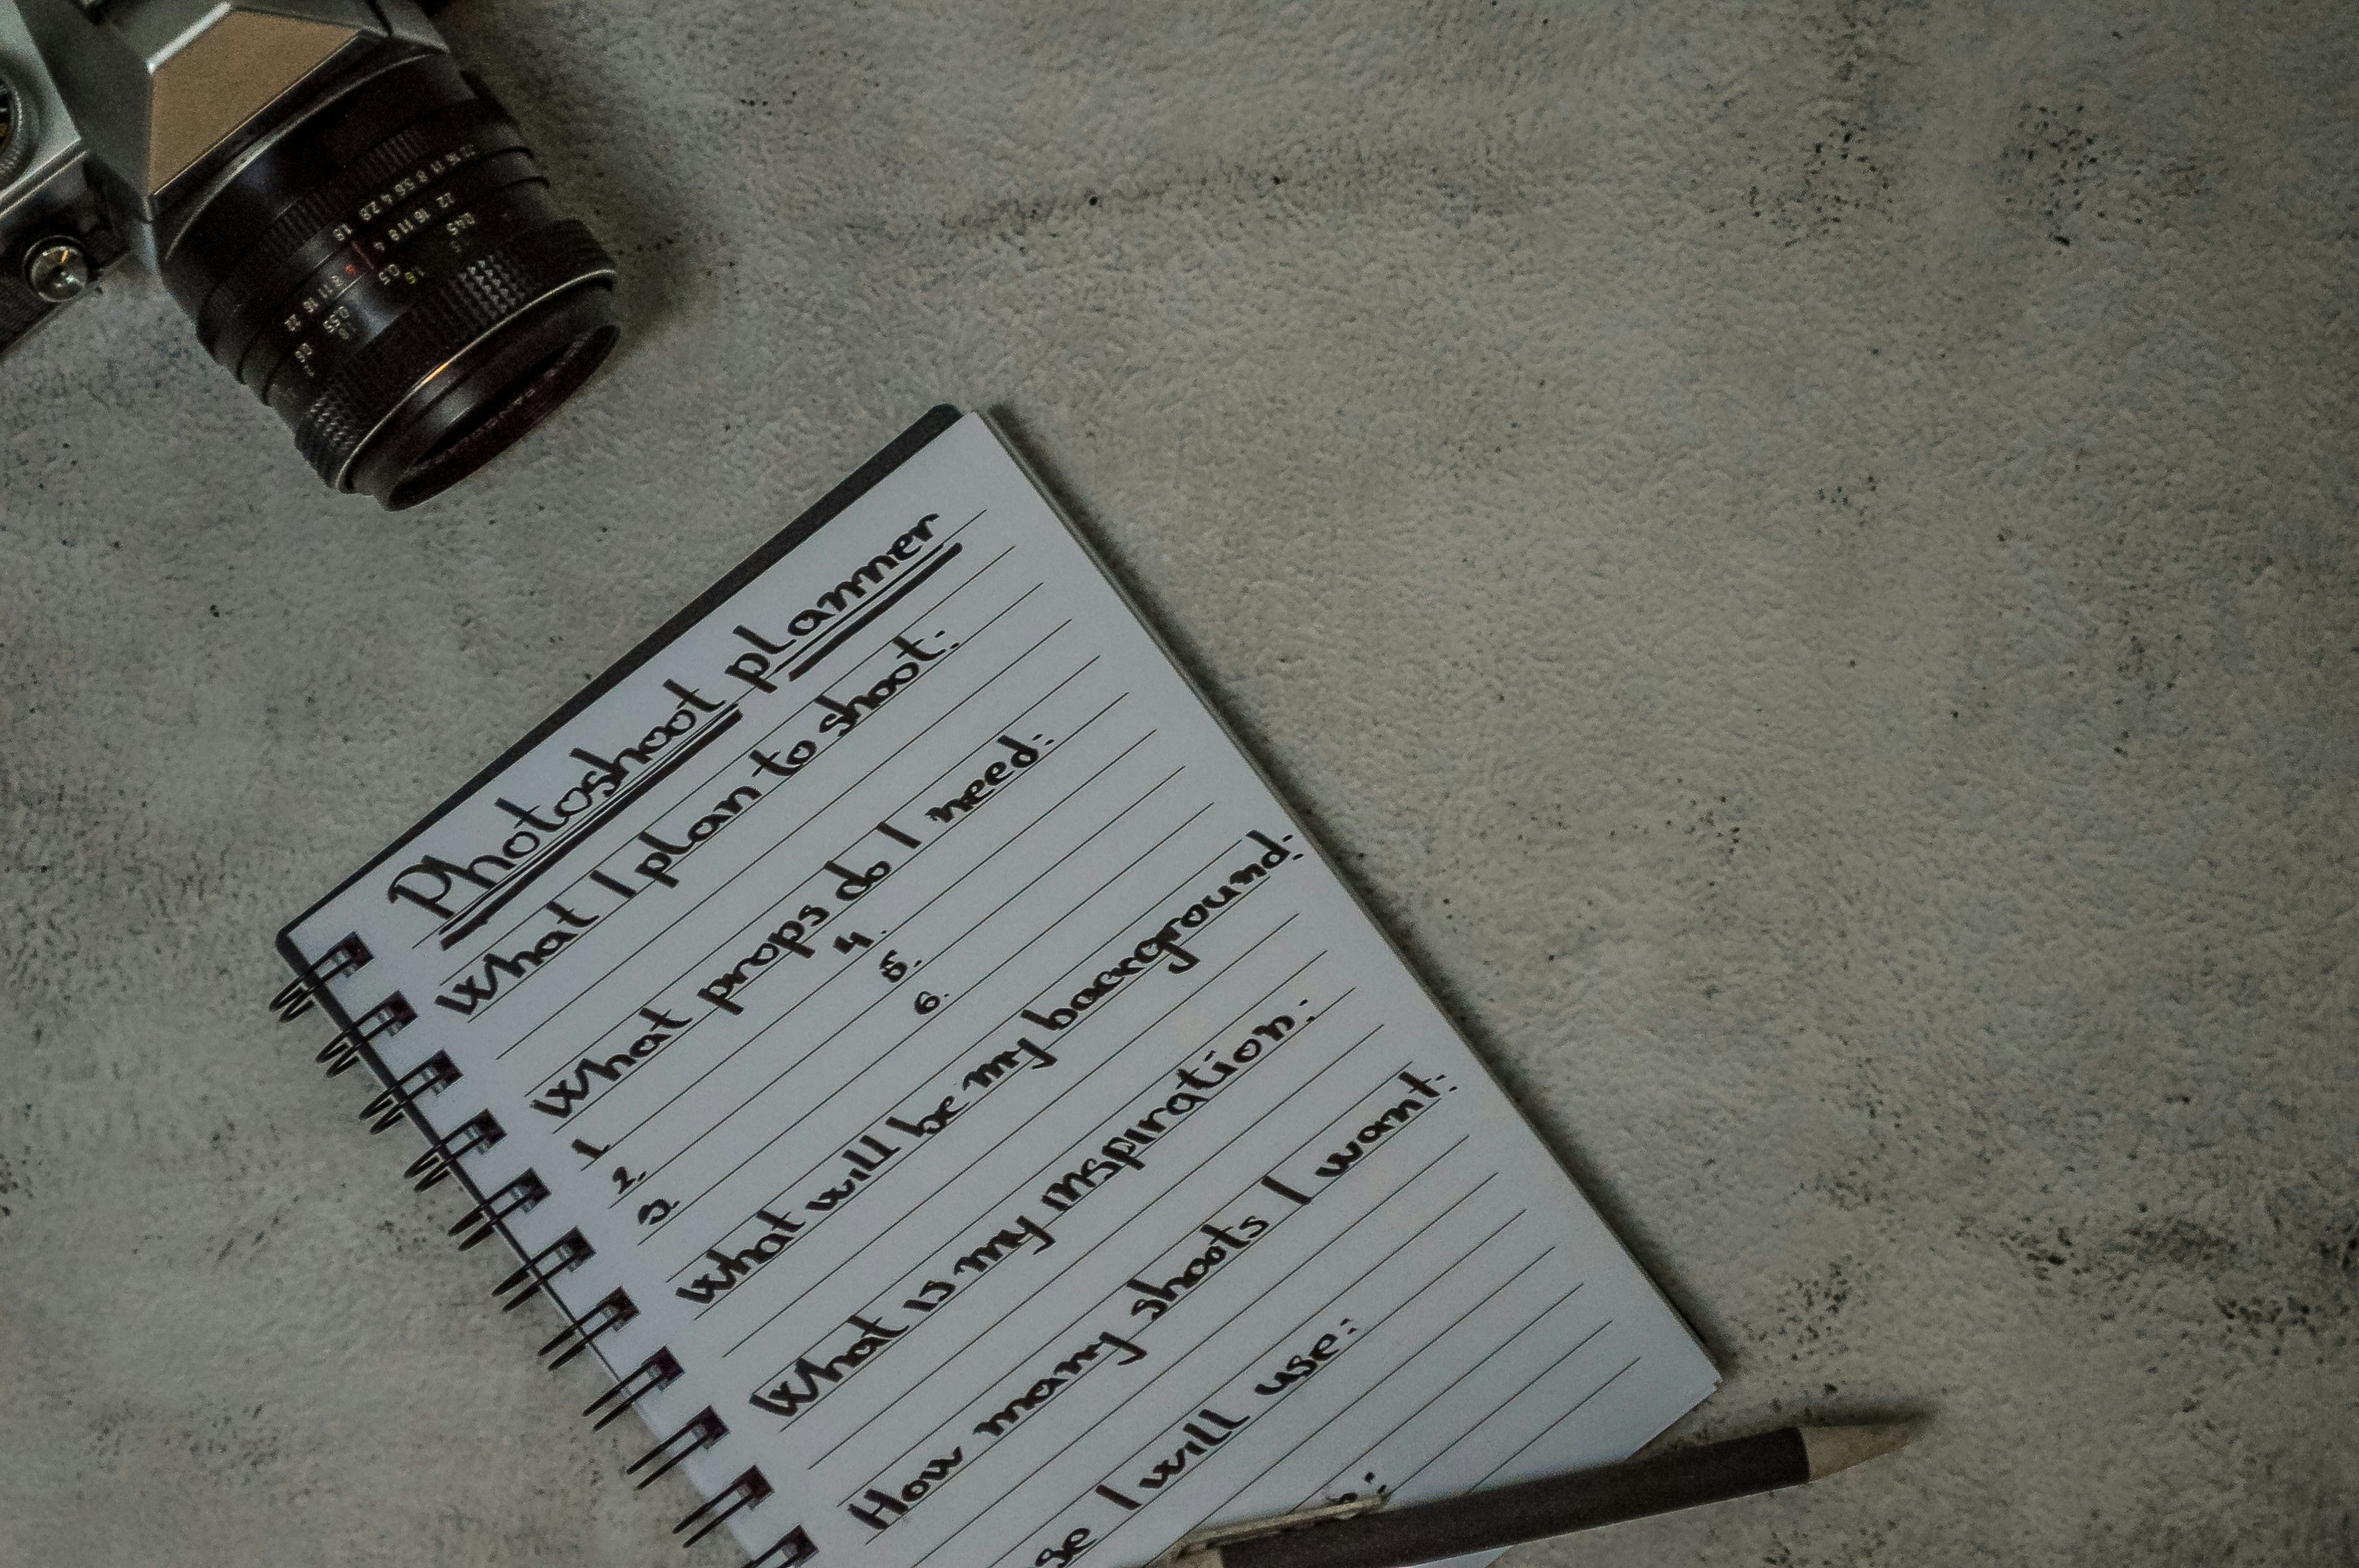 Photoshoot planner
What I plan to shoot:
What props do I need:
1. 4.
2. 5.
3. 6.
What will be my background:
What is my inspiration:
How many shoots I want:
I will use: